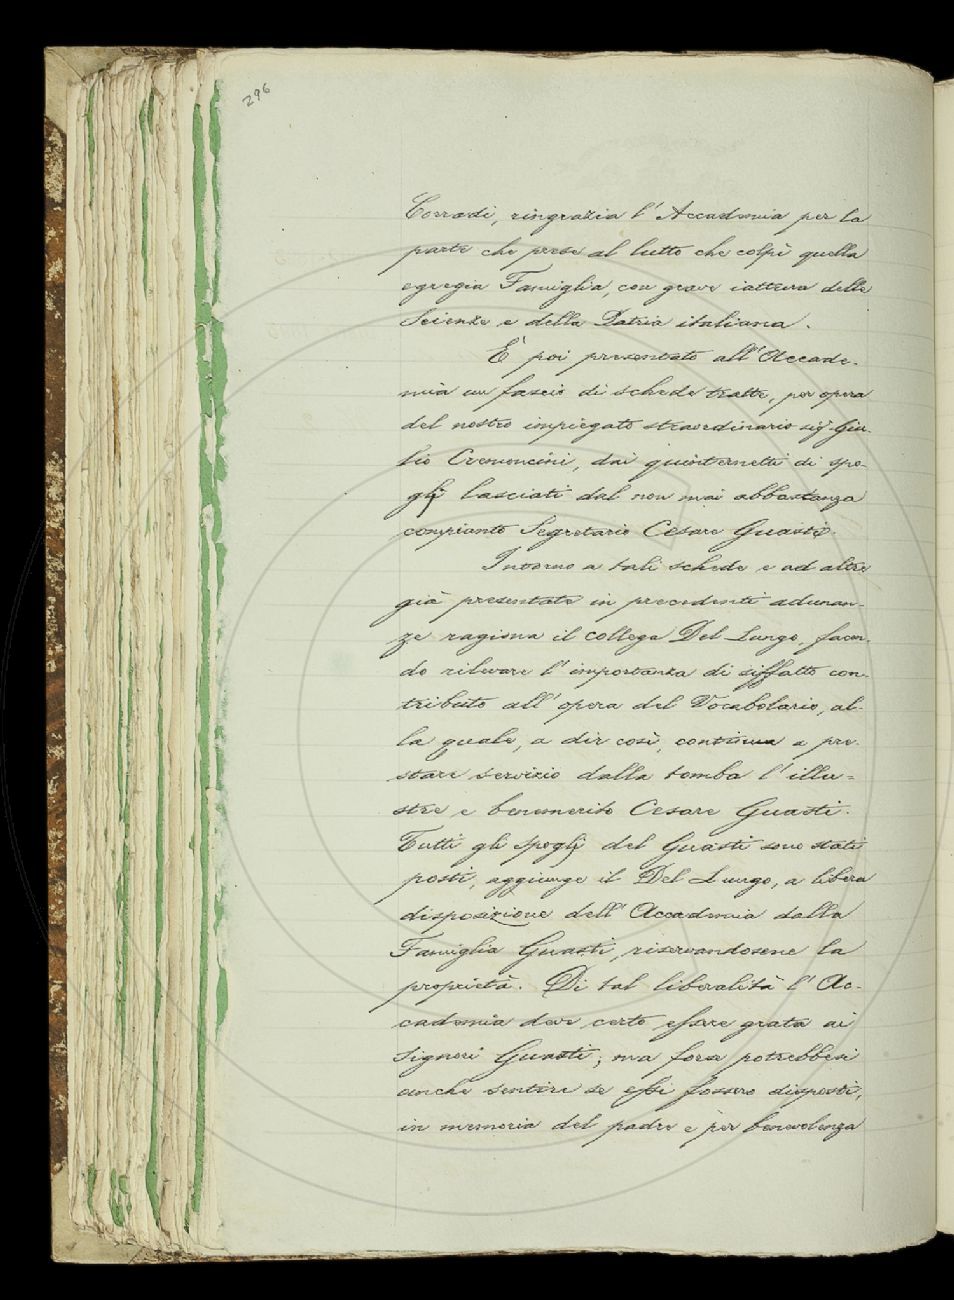 296
Corradi, ringrazia l'Accademia per la
parte che prese al lutto che colpì quella
egregia Famiglia, con grave iattura delle
Scienze e della Patria italiana.
È poi presentato all'Accade-
mia un fascio di schede tratte, per opera
del nostro impiegato straordinario sig. Giu-
lio Cremoncini, dai quinternetti di spo-
glj lasciati dal non mai abbastanza
compianto Segretario Cesare Guasti.
Intorno a tali schede e ad altre
già presentate in precedenti adunan-
ze ragiona il collega Del Lungo, facen-
do rilevare l'importanza di siffatto con-
tributo all'opera del Vocabolario, al-
la quale, a dir così, continua a pre-
stare servizio dalla tomba l'illu-
stre e benemerito Cesare Guasti.
Tutti gli spoglj del Guasti sono stati
posti, aggiunge il Del Lungo, a libera
disposizione dell'Accademia dalla
Famiglia Guasti, riservandosene la
proprietà. Di tal liberalità l'Ac-
cademia deve certo essere grata ai
Signori Guasti; ma forse potrebbesi
anche sentire se essi fossero disposti,
in memoria del padre e per benevolenza